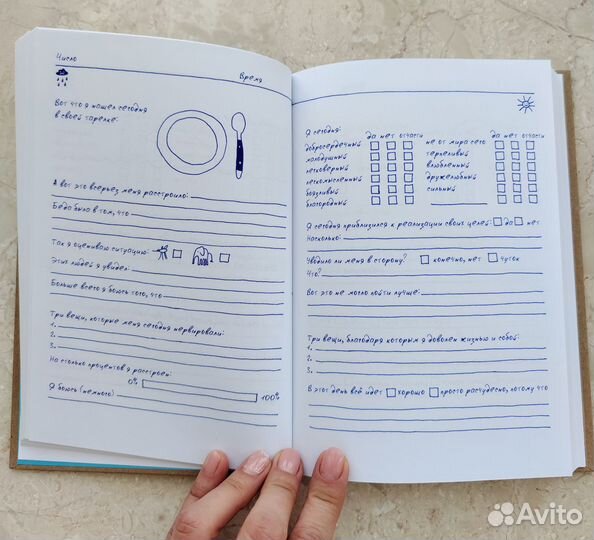 Число
Время
Вот что я нашел сегодня
в своей тарелке:
А вот это всерьез меня расстроило:
Беда была в том, что
Так я оцениваю ситуацию:
Этих людей я увидел:
Больше всего я боюсь того, что
Три вещи, которые меня сегодня нервировали:
1.
2.
3.
На столько процентов я расстроен:
0% 100%
Я боюсь (немного)
Я сегодня: да нет отчасти да нет отчасти
добросердечный не от мира сего
малодушный терпеливый
легковерный влюбленный
легкомысленный дружелюбный
боязливый сильный
благородный
Я сегодня приблизился к реализации своих целей: да нет
Насколько:
Уводило ли меня в сторону? конечно, нет чуток
Что?
Вот это не могло пойти лучше:
Три вещи, благодаря которым я доволен жизнью и собой:
1.
2.
3.
В этот день всё идет хорошо просто расчудесно, потому что
Avito